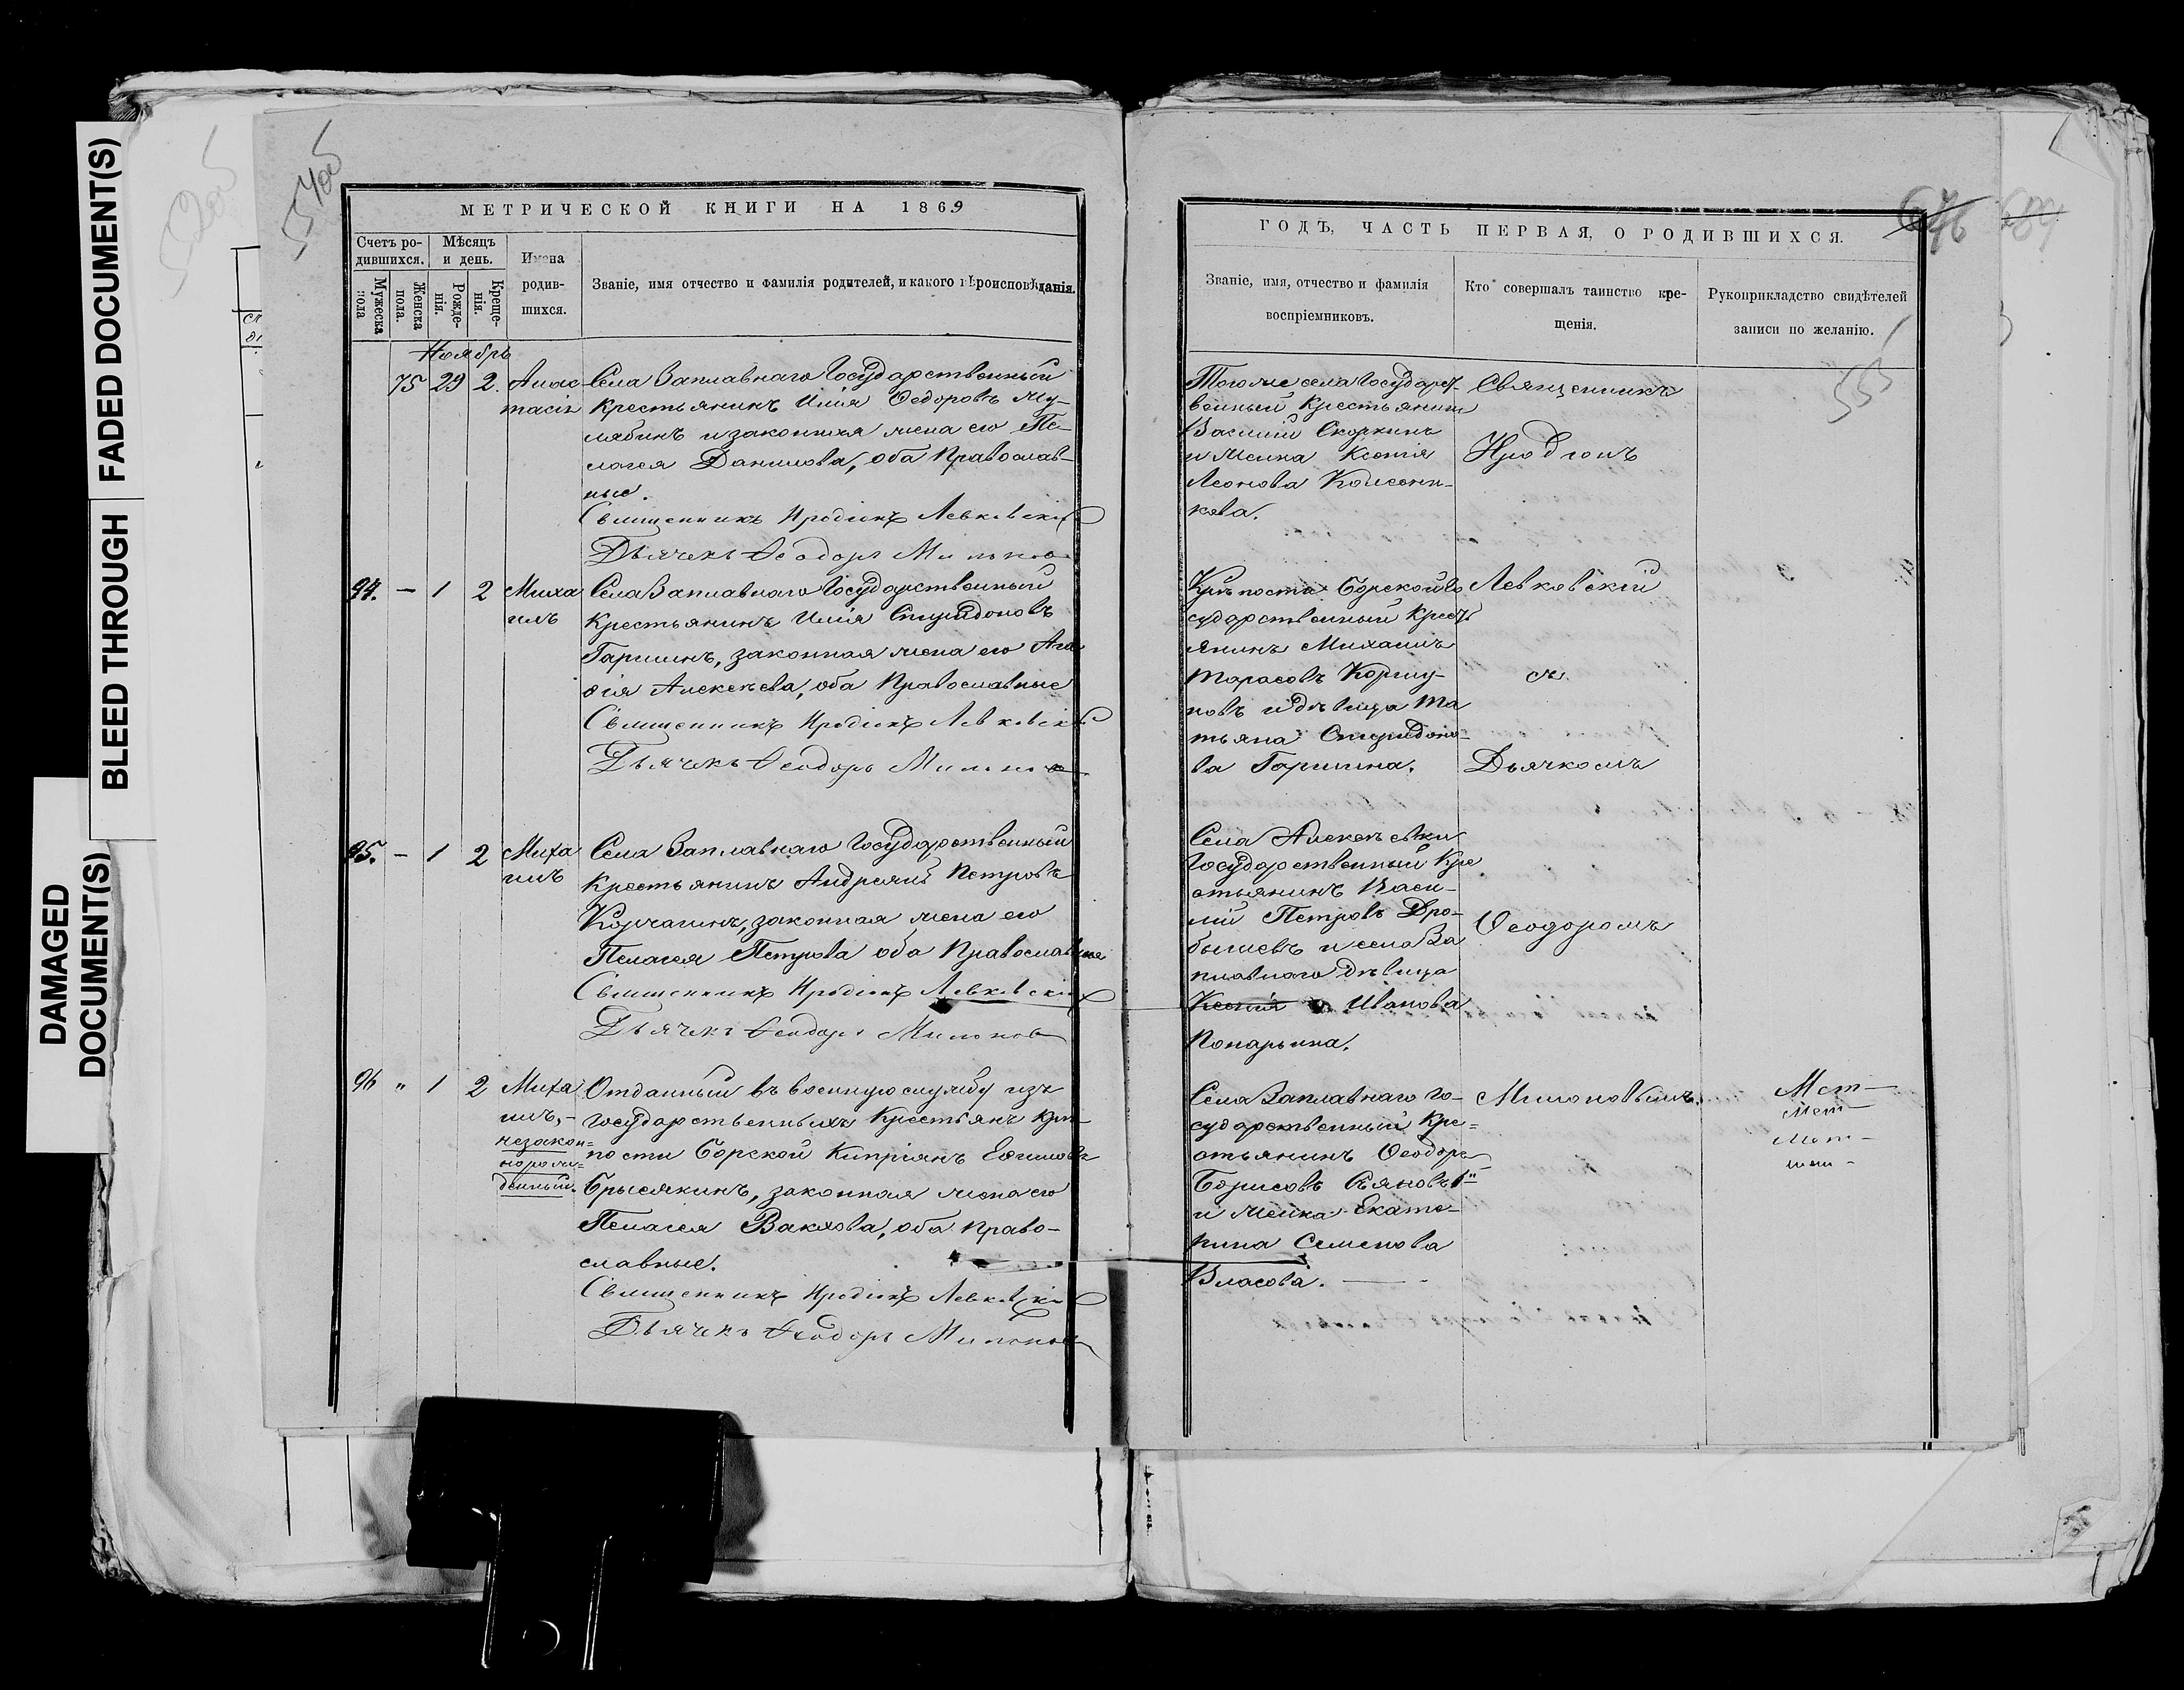 FADED DOCUMENT(S)
BLEED THROUGH
DAMAGED
DOCUMENT(S)
МЕТРИЧЕСКОЙ КНИГИ НА 1869
Счетъ ро-
дившихся.
Мѣсяцъ
и день.
Мужеска
пола
Женска
пола.
Рожде-
нія.
Креще-
нія.
Имена
родив-
шихся.
Званіе, имя отчество и фамилія родителей, и какого вѣроисповѣданія.
Ноябрь
75 29 2.
Анас
тасія
Села Заплавнаго Государственный
Крестьянинъ Илія Ѳедоровъ Му-
лябинъ и законная жена его Пе-
лагея Данилова, оба Православ-
ные.
Священникъ Иродіонъ Левковскій
Дьячекъ Ѳеодоръ Милонов
94. - 1 2
Миха
илъ
Села Заплавнаго Государственный
Крестьянинъ Илія Спиридоновъ
Гаршинъ, законная жена его Ага
ѳія Алексѣева, оба Православные
Священникъ Иродіонъ Левковскій
Дьячекъ Ѳеодоръ Милонов
95. - 1 2
Миха
илъ
Села Заплавнаго Государственный
Крестьянинъ Андреянъ Петровъ
Корчагинъ, законная жена его
Пелагея Петрова оба Православные
Священникъ Иродіонъ Левковскій
Дьячекъ Ѳеодоръ Милонов
96 " 1 2
Миха
илъ,-
незакон=
норож=
денный.
Отданный въ военную службу изъ
государственныхъ Крестьянъ Крѣ-
пости Борской Кипріянъ Еѳимовъ
Брысякинъ, законная жена его
Пелагея Вакхова, оба Право-
славные.
Священникъ Иродіонъ Левковскій
Дьячекъ Ѳеодоръ Милонов
ГОДЪ, ЧАСТЬ ПЕРВАЯ, О РОДИВШИХСЯ.
Званіе, имя, отчество и фамилія
воспріемниковъ.
Кто совершалъ таинство кре-
щенія.
Рукоприкладство свидѣтелей
записи по желанію.
Тогоже села Государст-
венный Крестьянинъ
Василій Скоркинъ
и Женка Ксенія
Леонова Колесни-
кова.
Крѣпости Борской Го
сударственный Кресть
янинъ Михаилъ
Тарасовъ Коршу-
новъ и дѣвица Та
тьяна Спиридоно-
ва Гаршина.
Села Алексѣевки
Государственный Кре
стьянинъ Васи-
лій Петровъ Дро-
бышевъ и села За
плавнаго дѣвица
Ксенія Иванова
Понарьина.
Села Заплавнаго Го-
сударственный Кре=
стьянинъ Ѳеодоръ
Борисовъ
и Женка Екате-
рина Семенова
Власова.
Священникъ
Иродіонъ
Левковскій
съ
Дьячкомъ
Ѳеодоромъ
Милоновымъ.